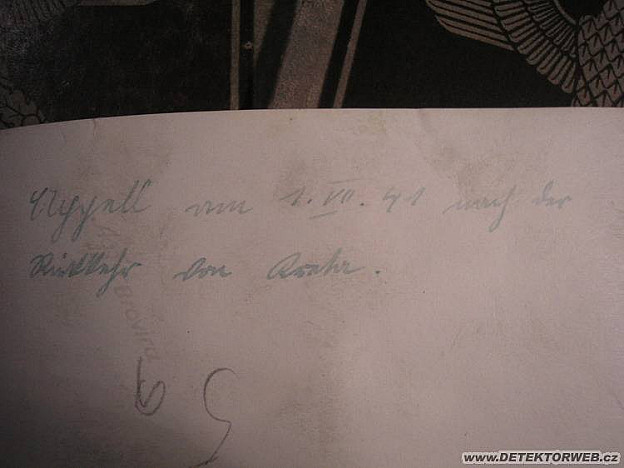 Appell am 1. VII. 41 nach der
Rückkehr von Kreta.
Brovira
6 5
www.DETEKTORWEB.cz